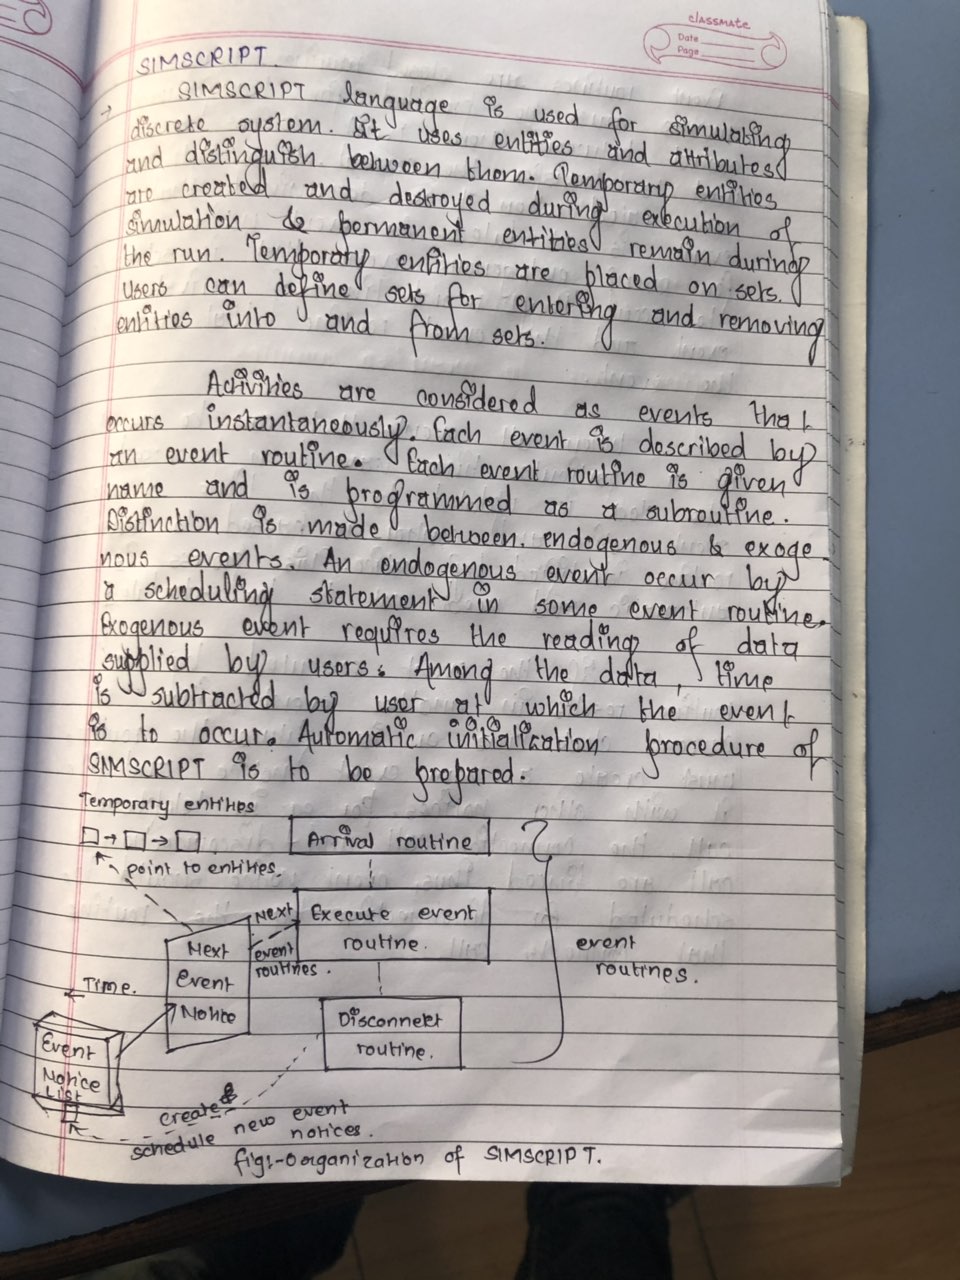 classmate
Date
Page
SIMSCRIPT.
→ SIMSCRIPT language is used for simulating
discrete system. It uses entities and attributes
and distinguish between them. Temporary entities
are created and destroyed during execution of
simulation & permanent entities remain during
the run. Temporary entities are placed on sets.
Users can define sets for entering and removing
entities into and from sets.
Activities are considered as events that
occurs instantaneously. Each event is described by
an event routine. Each event routine is given
name and is programmed as a subroutine.
Distinction is made between endogenous & exoge
nous events. An endogenous event occur by
a scheduling statement in some event routine.
Exogenous event requires the reading of data
supplied by users. Among the data, time
is subtracted by user at which the event
is to occur. Automatic initialization procedure of
SIMSCRIPT is to be prepared.
Temporary entities
point to entities.
Arrival routine
Next
event
routines.
Execute event
routine.
Next
Event
Notice
event
routines.
Time.
Disconnect
routine.
Event
Notice
List
create &
schedule new event
notices.
fig:-Oorganization of SIMSCRIPT.